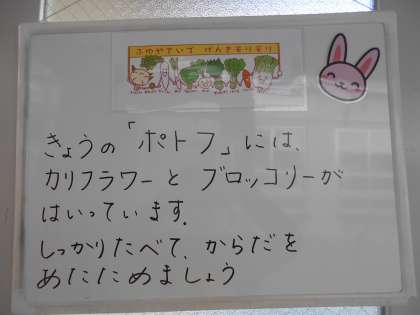 ふゆやさいで げんきモリモリ
きょうの「ポトフ」には、
カリフラワーと ブロッコリーが
はいっています。
しっかりたべて、からだを
あたためましょう